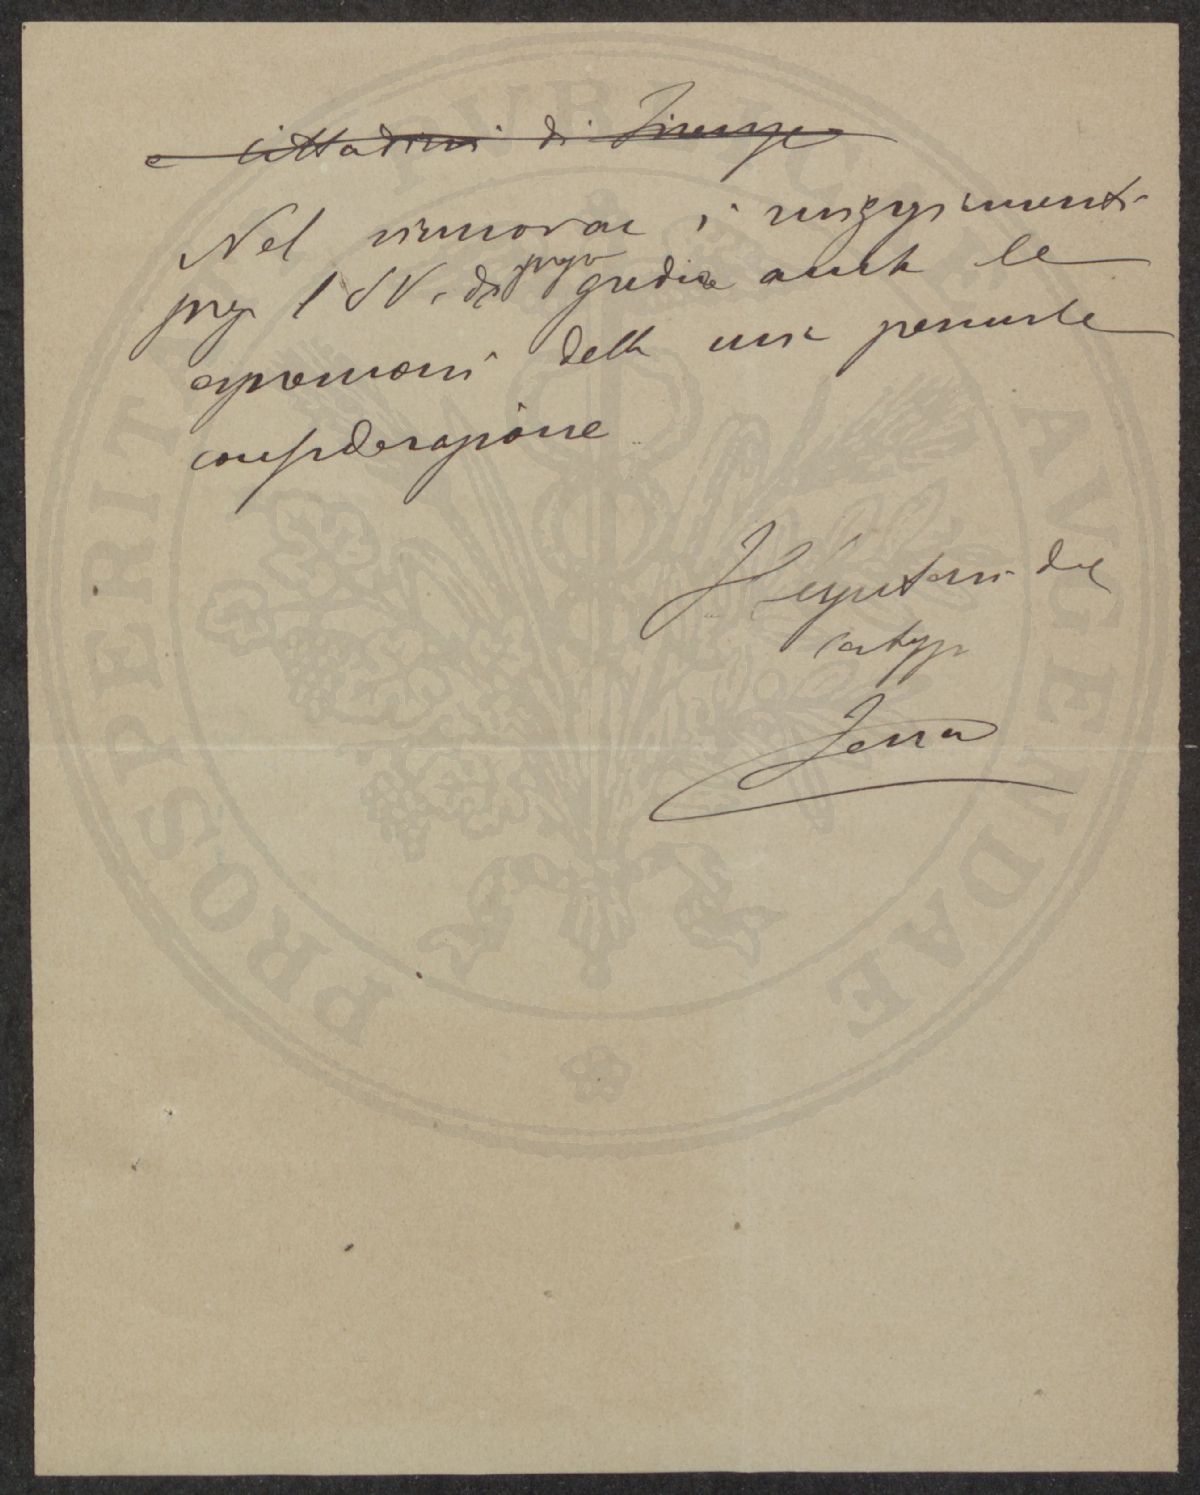 e cittadini di Firenze
Nel rinnovar i ringraziamenti
prego
l S V. di gradire anche le
espressioni della mia personale
considerazione
Il Segretario del
PROSPERITATI PVBLICAE AVGENDAE